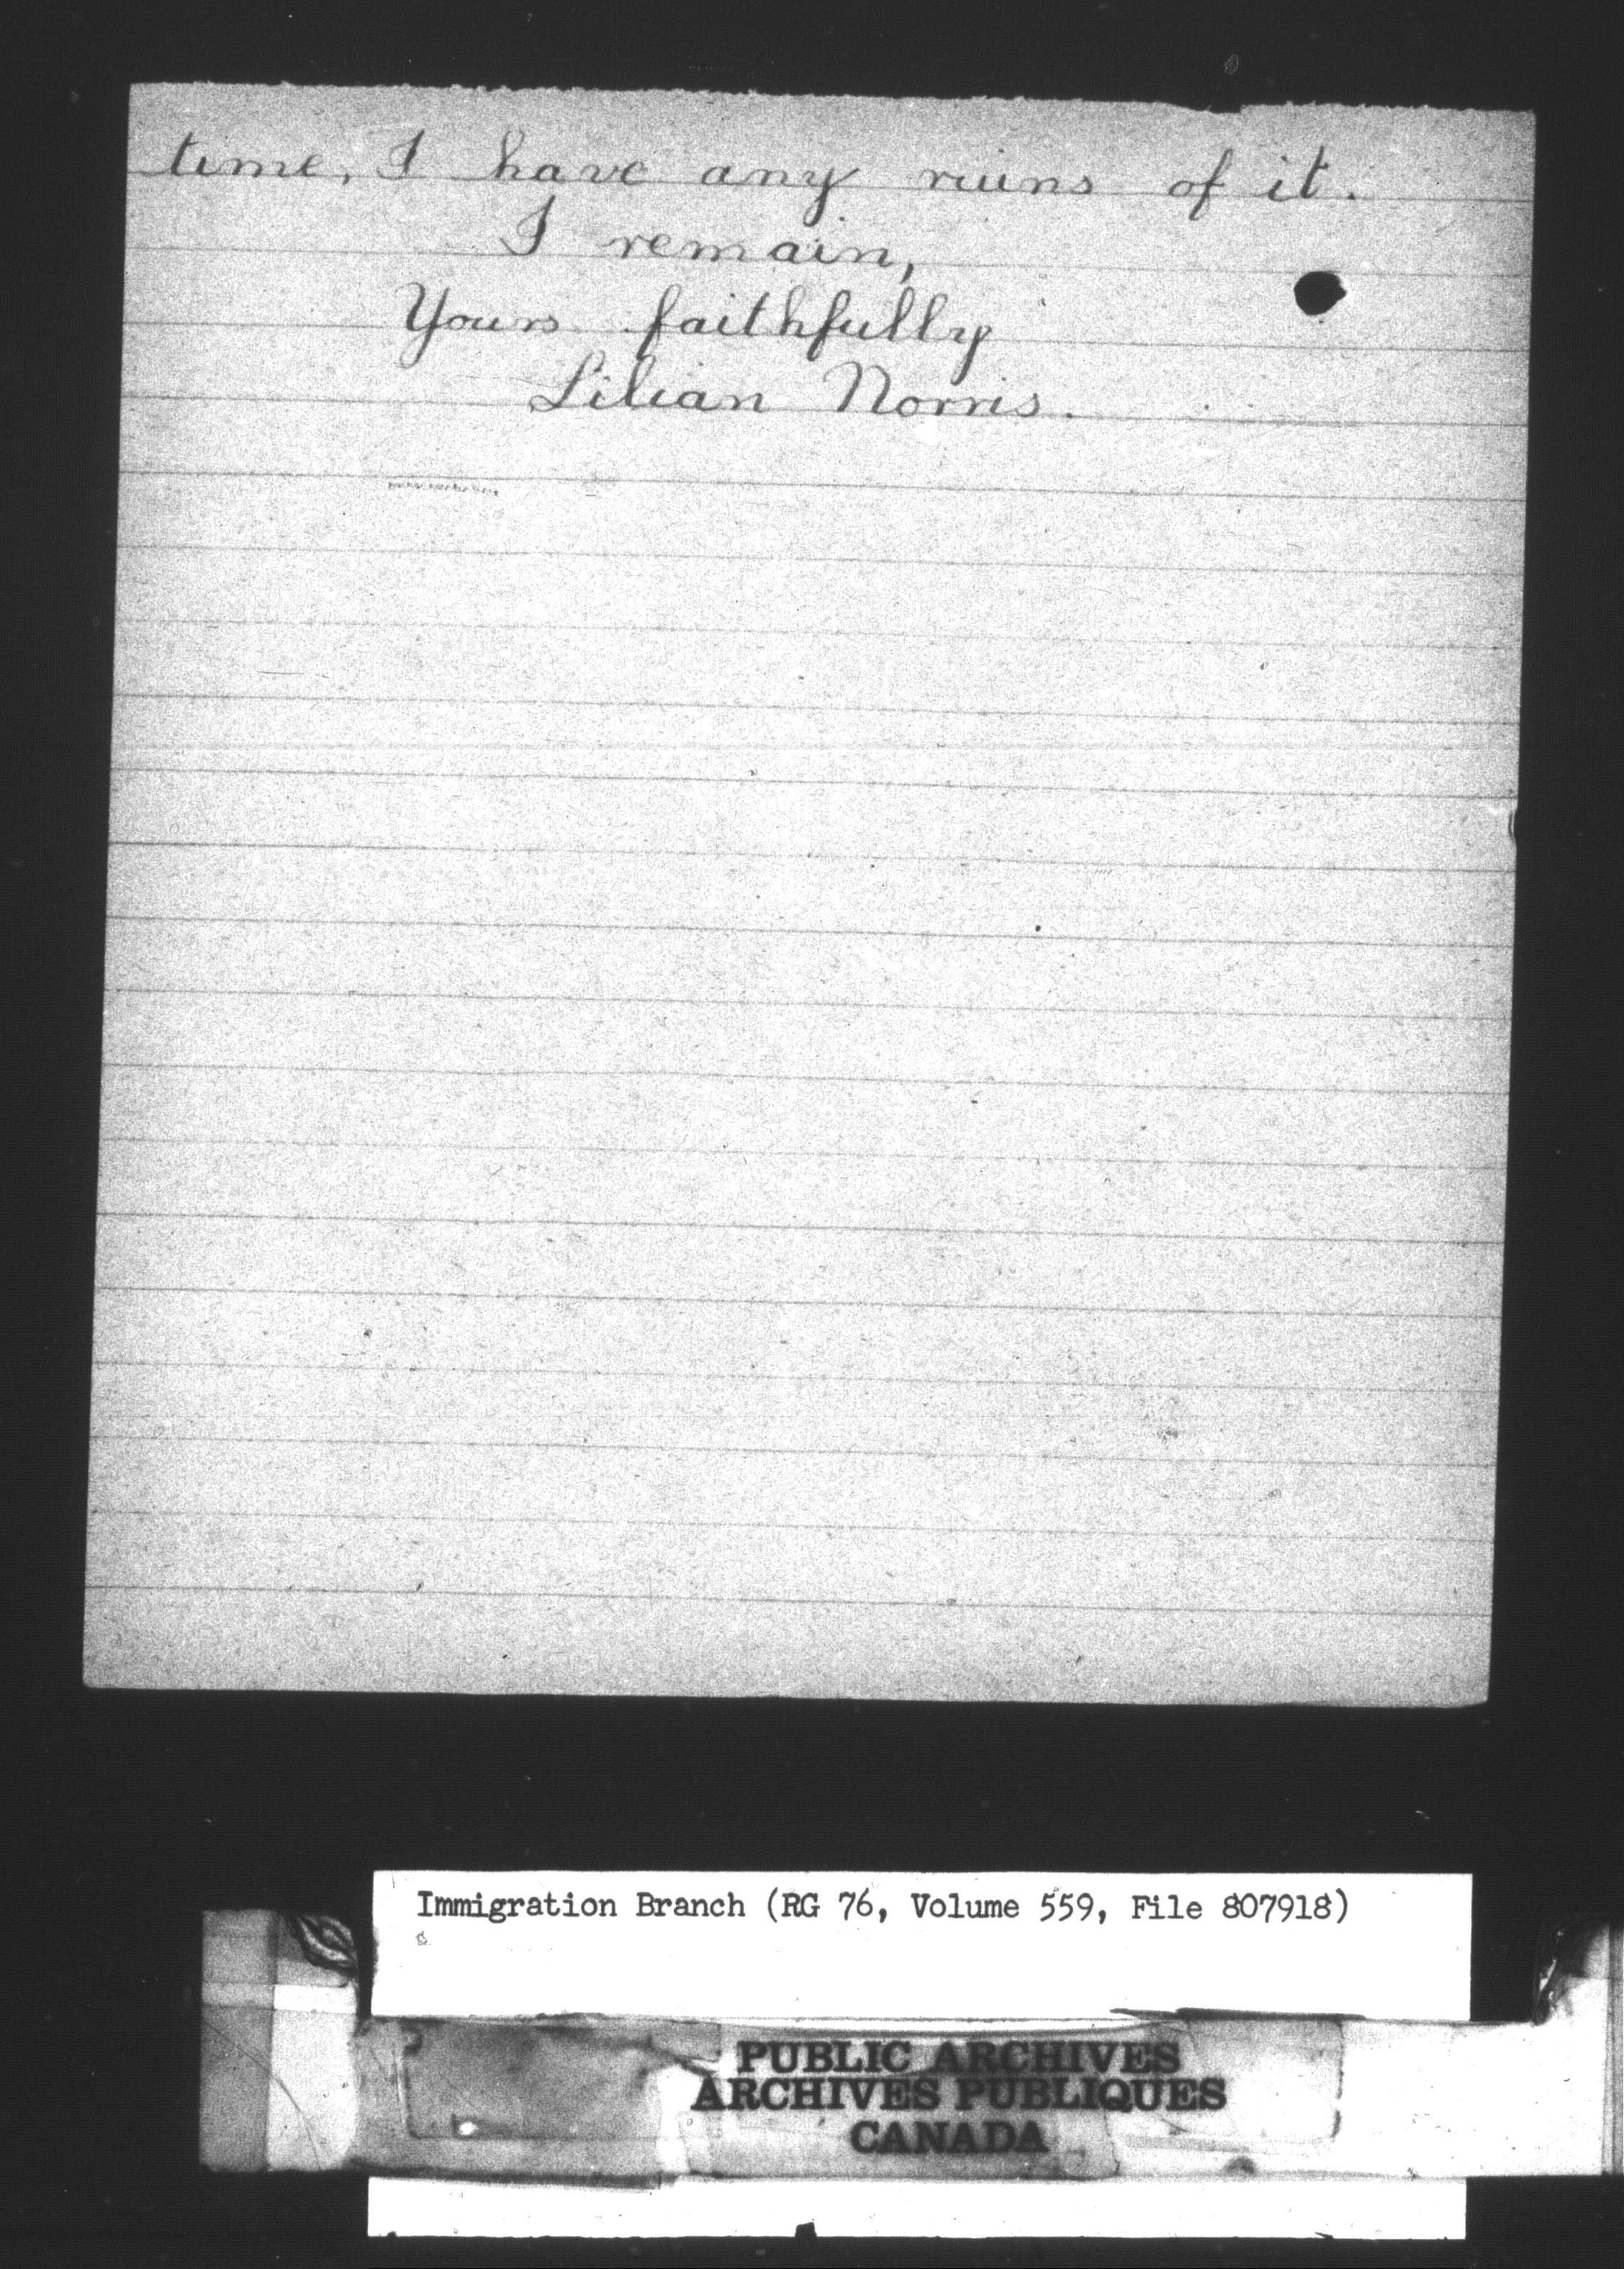 time, I have any ruins of it.
I remain,
Yours faithfully
Lilian Norris.
Immigration Branch (RG 76, Volume 559, File 807918)
PUBLIC ARCHIVES
ARCHIVES PUBLIQUES
CANADA